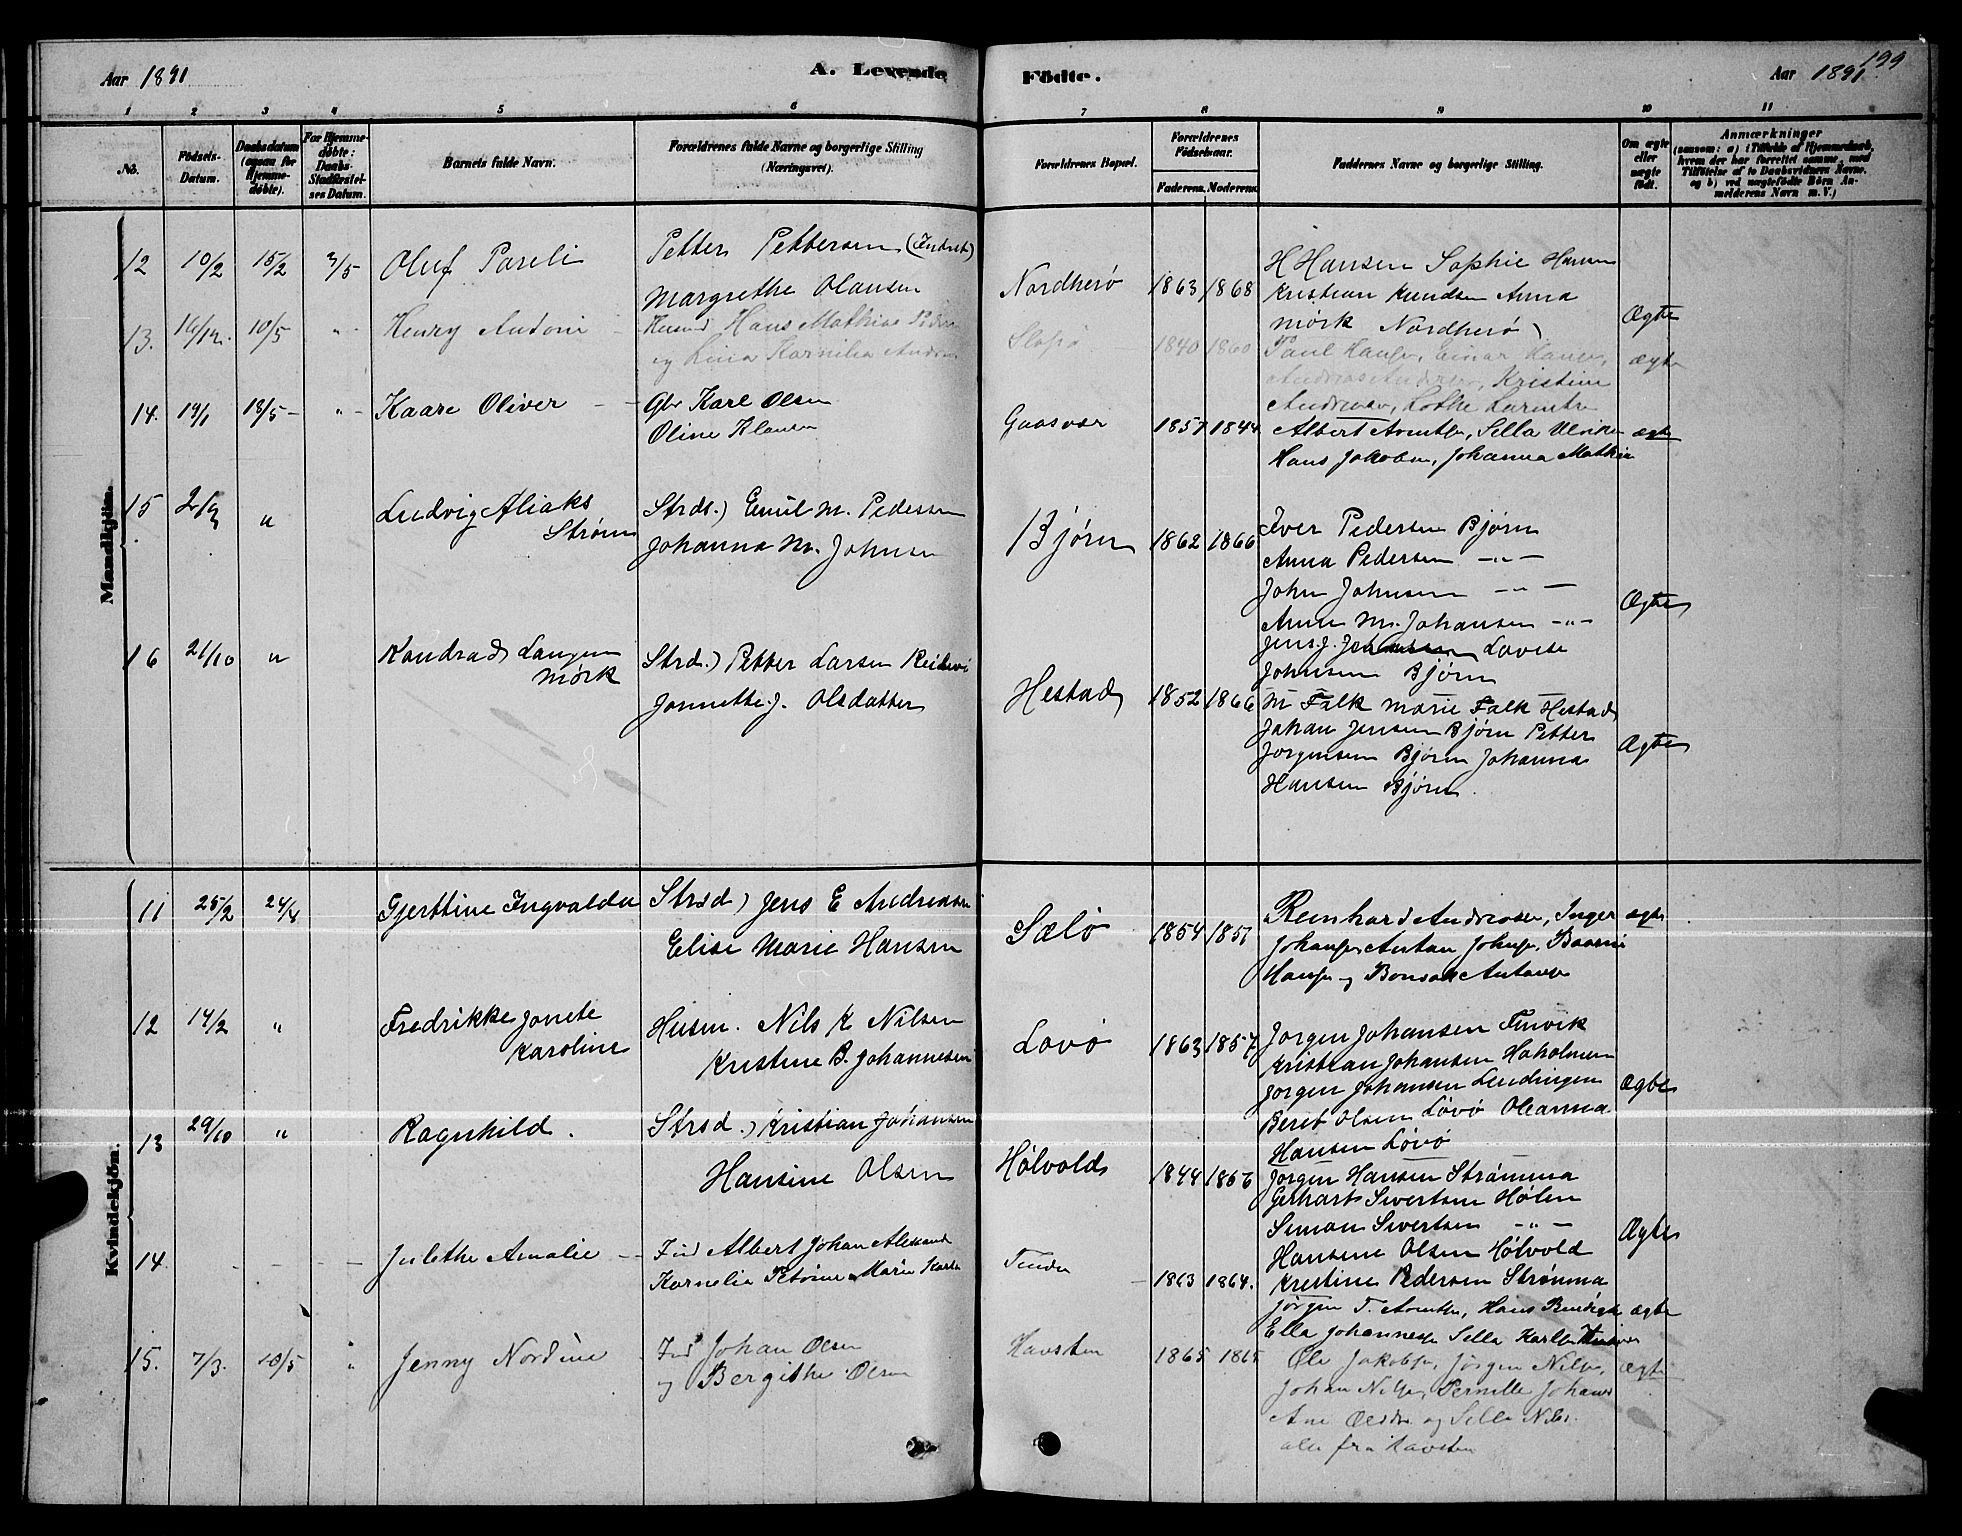 Aar 1891
A. Levende
Födte.
Aar 1891.
199
1 2 3 4 5 6 7 8 9 10 11
No.
Födsels-
Datum.
Daabsdatum
(ogsaa for
Hjemme-
döbte).
For Hjemme-
døbte:
Daabs-
Stadfæstel-
ses Datum.
Barnets fulde Navn.
Forældrenes fulde Navne og borgerlige Stilling
(Næringsvei).
Forældrenes Bopæl.
Forældrenes
Födselsaar.
Faderens. Moderens.
Faddernes Navne og borgerlige Stilling.
Om ægte
eller
uægte
födt.
Anmærkninger
(saasom: a) i Tilfælde af Hjemmedaab,
hvem der har forrettet samme, med
Tilföielse af to Daabsvidners Navne,
og b) ved uægtefödte Börn An-
melderens Navn m. V.)
Mandkjön.
12 10/2 15/2 3/5 Oluf Pareli
Petter Pettersen (Inderst)
Margrethe Olausen
Nordherø 1863 1868
H Hansen Sophie Hansen
Kristian Knudsen Anna
Mørk Nordherø
Ægte
13. 16/12. 10/5 Henry Antoni
Husmd Hans Mathias
og Lina Kornilia
1840 1860
Paul Hansen, Einar Hansen,
Kristine
ægte
14. 19/1 18/5 Kaare Oliver
Gbr Karl Olsen
Oline Klausen
Gaasvær 1857 1844
Albert Arntsen, Sella Ulriksen
Hans Jakobsen, Johanna Mathis
ægte
15 2/9 " Ludvig Aliaks
Strøm
Strds.) Emil M. Pedersen
Johanna M. Johnsen
Bjørn 1862 1866
Iver Pedersen Bjørn
Anna Pedersen -"-
John Johnsen -"-
Anna M. Johansen -"-
Jens J. Lovise
Johnsen Bjørn
Ægte
16 21/10 " Kondrad Langem
Mørk
Strds.) Petter Larsen
Jonnette J. Olsdatter
Hestad 1852 1866
M Falk Marie Falk Hestad
Johan Jensen Bjørn Petter
Jørgensen Bjørn Johanna
Hansen Bjørn.
Ægte
Kvindekjön.
11 25/2 24/4 Gjerttine Ingvalda
Strsd.) Jens E Andreasen
Elise Marie Hansen
Sælø 1854 1851
Reinhard Andreasen, Inger
Johansen, Antan Johnsen,
Hansen og Bonsak Antonsen
ægte
12 14/2 " Fredrikke Jonete
Karoline
Husm. Nils K Nilsen
Kristine B. Johannesen
Lovø 1863 1857
Jørgen Johansen Finvik
Kristian Johansen Haholmen
Jørgen Johansen Lendingen
Beret Olsen Løvø Oleanna
Hansen Løvø
Ægte
13 29/10 " Ragnhild.
Strsd.) Kristian Johansen
Hansine Olsen
Hølvold 1844 1856
Jørgen Hansen Strømma
Gerhart Sivertsen Hølen
Simon Sivertsen -"-
Hansine Olsen Hølvold
Kristine Pedersen Strømma
Ægte
14. Julethe Amalie
Ind Albert Johan
Kornelia Petrine Marie
1863 1864.
Jørgen T. Arntsen, Hans
Ella Johannesen Sella Karlsen
ægte
15. 7/3. 10/5 " Jenny Nordine
Ind Johan Olsen
og Bergithe Olsen
Havsten 1865 1865
Ole Jakobsen, Jørgen Nilsen,
Johan Nilsen, Pernille
Ane Olsdtr og Sella Nils.
alle fra Havsten
ægte